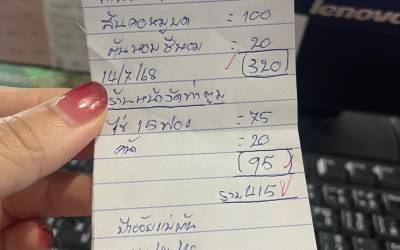 lenovo
สันคอหมูบด = 100
ต้นหอม ชีหอม = 20
14/7/68 (320)
ร้านหน้าวัดท่าตูม
ไข่ 15 ฟอง = 75
= 20
(95)
รวม 415